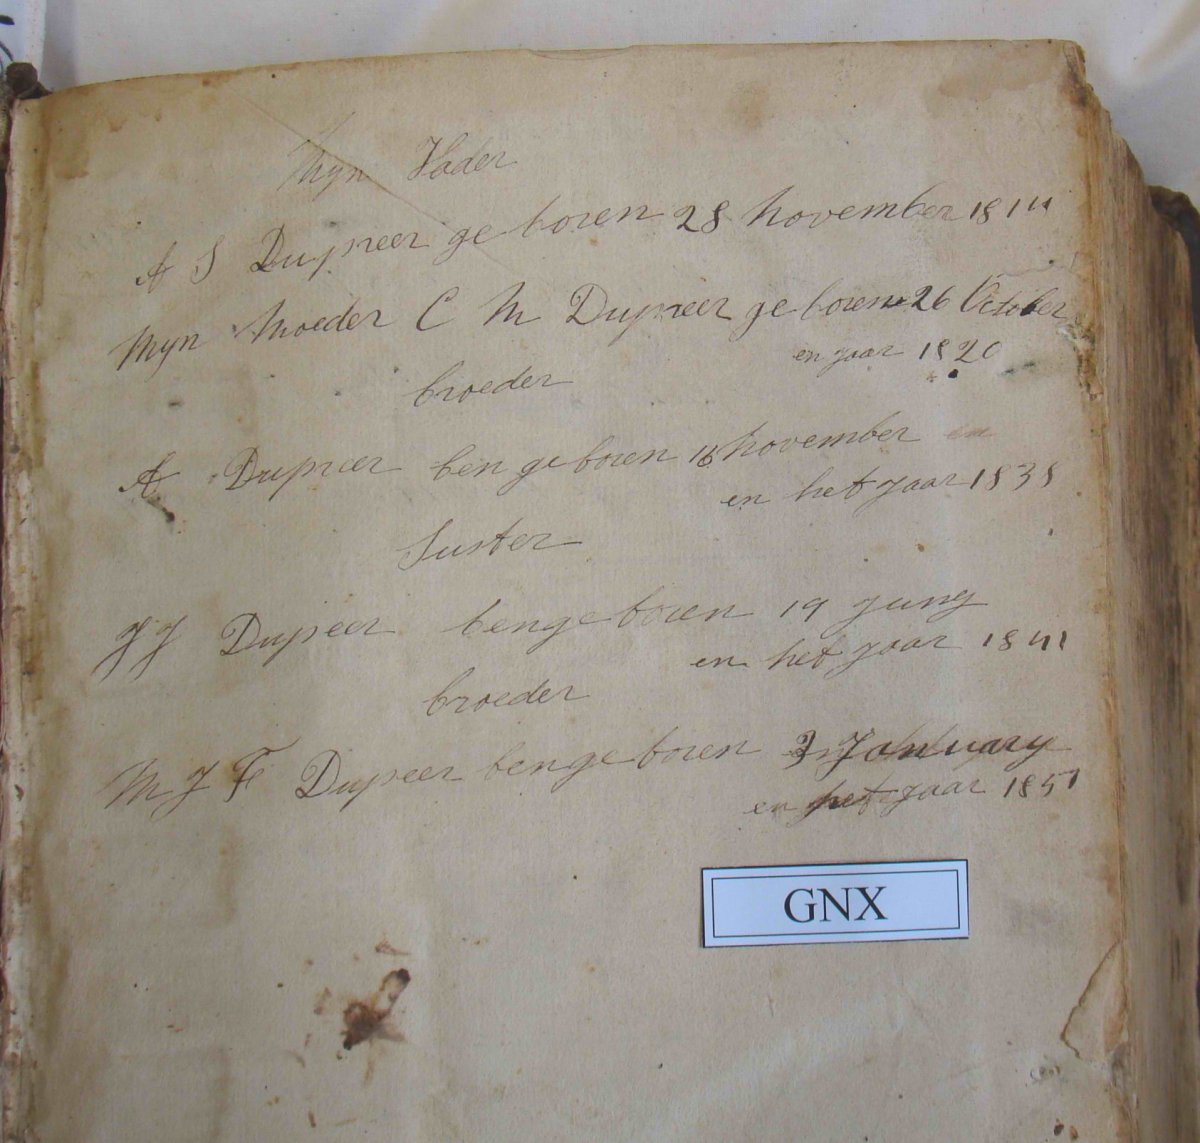 Myn Vader
A S Dupreer ge boren 28 november 1814
Myn Moeder C M Dupreer ge boren 26 October
en jaar 1820
broeder
A Dupreer ben ge boren 16 november en
en het jaar 1838
Suster
J J Dupeer ben ge boren 19 juny
en het jaar 1841
broeder
M J F Dupeer ben ge boren 3 January
en het jaar 1851
GNX